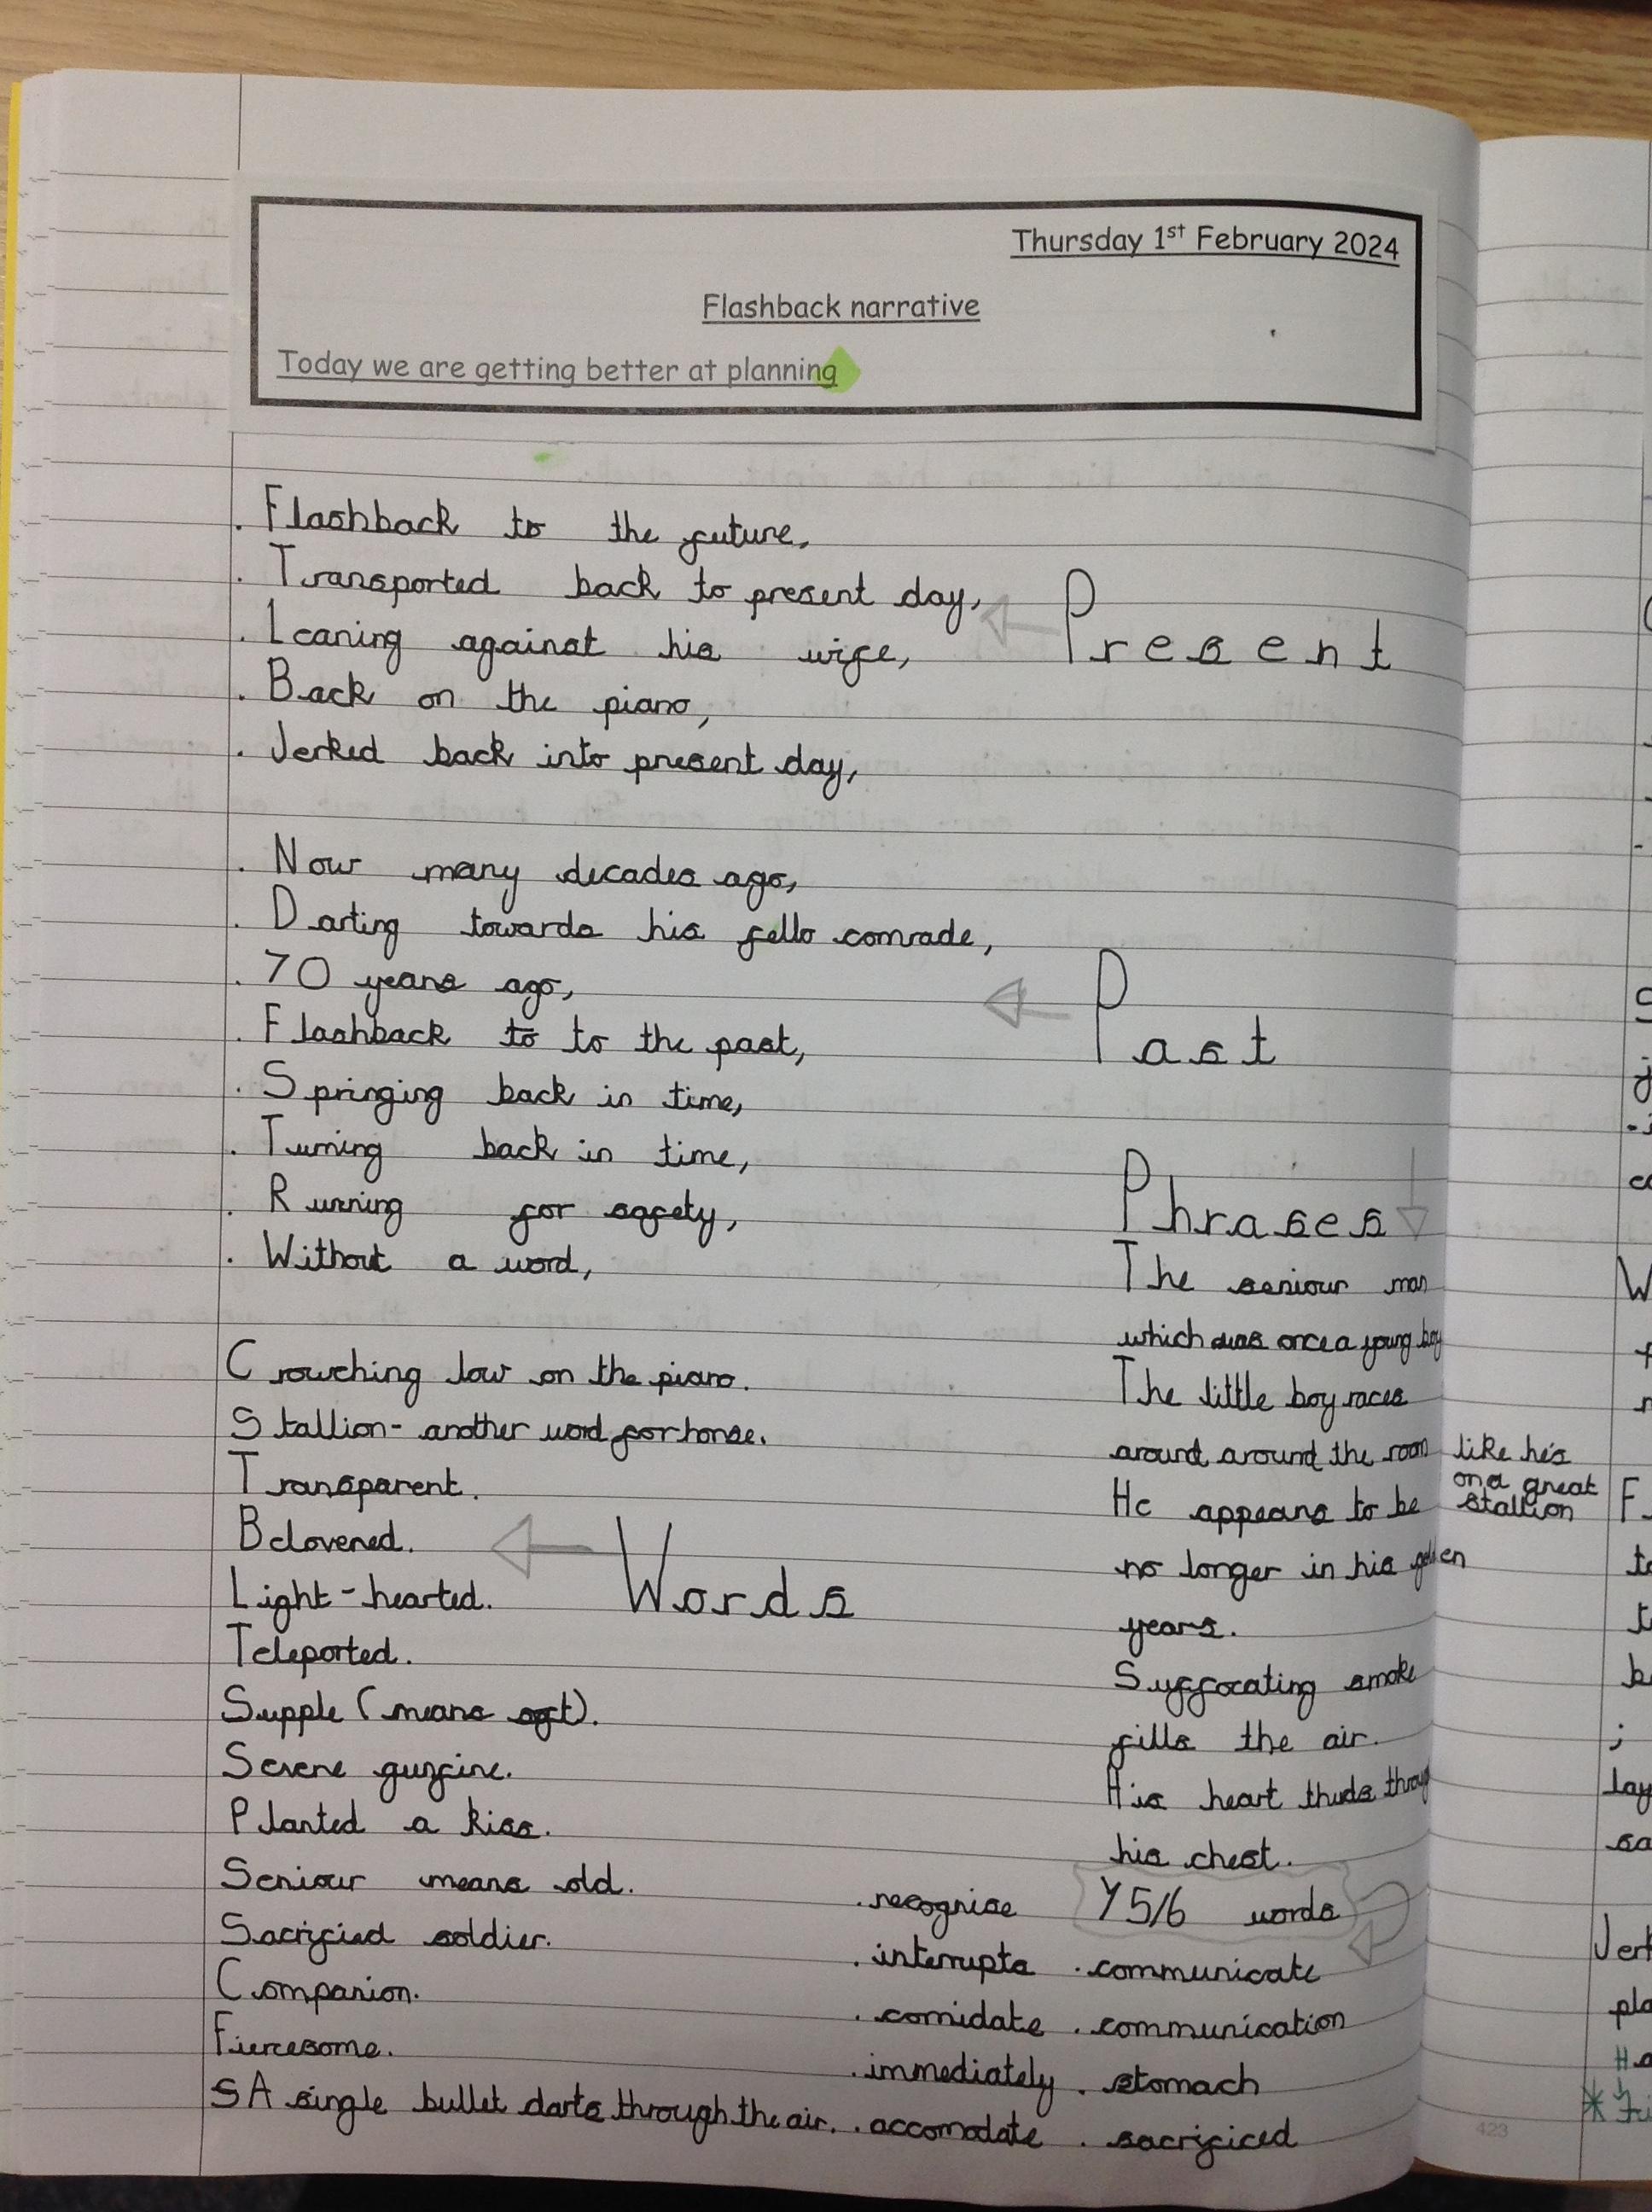 Thursday 1st February 2024
Flashback narrative
Today we are getting better at planning
. Flashback to the future,
. Transported back to present day,
. Leaning against his wife,
. Back on the piano,
. Jerked back into present day,
Present
. Now many decades ago,
. Darting towards his fello comrade,
. 70 years ago,
. Flashback to to the past,
. Springing back in time,
. Turning back in time,
. Running for safety,
. Without a word,
Past
Crouching low on the piano.
Stallion - another word for horse.
Transparent.
Belovered.
Light-hearted.
Teleported.
Supple (means soft).
Serene
Planted a kiss.
Seniour means old.
Sacrificed soldier.
Companion.
Fiercesome.
SA single bullet darts through the air.
Words
Phrases
The seniour man
which was once a young boy
The little boy races
around around the room like he's
on a great
stallion
He appears to be
no longer in his golden
years.
Suffocating smoke
fills the air.
His heart thuds through
his chest.
Y5/6 words
. recognise
. interrupts . communicate
. comidate . communication
. immediately . stomach
. accomodate . sacrificed
423